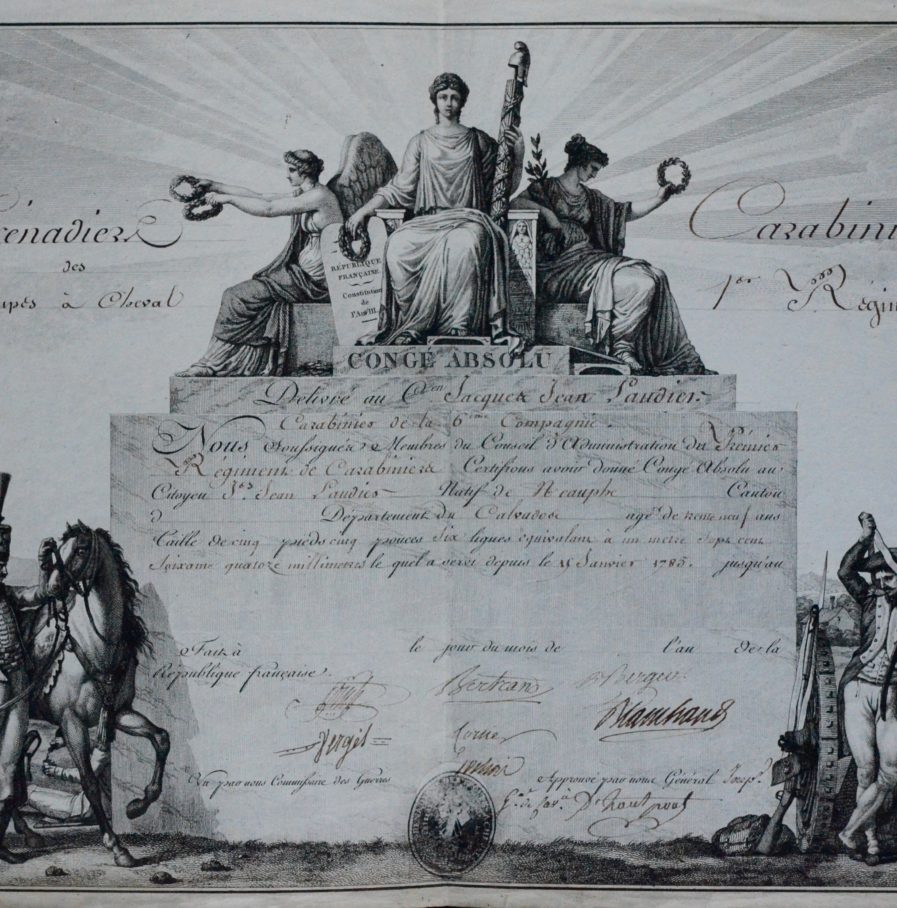 Carabini
des
à Cheval
1er Régim
RÉPUBLIQUE
FRANÇAISE.
Constitution
de
l'An VIII.
CONGÉ ABSOLU
Délivré au Cen Jacques Jean Laudier
Carabinier de la 6eme Compagnie.
Nous Soussignés Membres du Conseil d'Administration du Prémier
Régiment de Carabiniers Certifions avoir donné Congé Absolu au
Citoyen Js Jean Laudier Natif de Neauphe Canton
d Département du Calvados agé de trente neuf ans
taille de cinq pieds cinq pouces six lignes équivalant à un mètre sept cent
soixante quatorze millimetres le quel a servi depuis le 15 Janvier 1785. jusqu'au
Fait à le jour du mois de l'an de la
République française.
Bertran Berger
Vergés
Vu par nous Commissaire des Guerres Approuvé par nous Général Inspr
Gal de Cavie D'Hautpoul